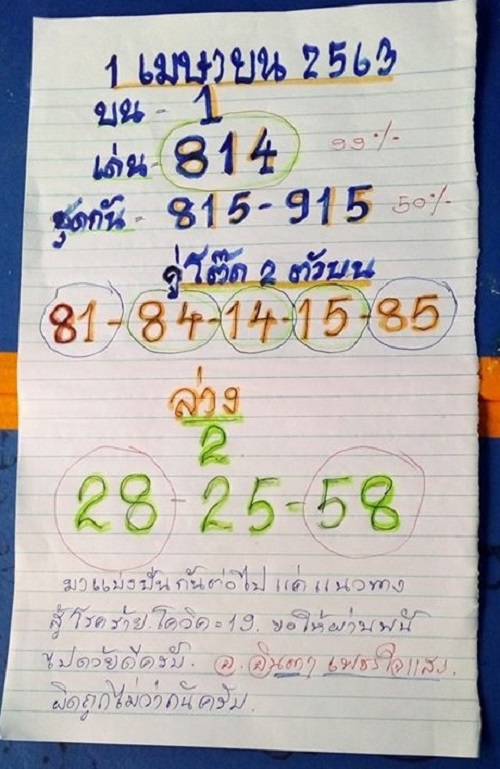 1 เมษายน 2563
บน - 1
เด่น - 814 99%
ชุดกัน - 815 - 915 50%
คู่โต๊ด 2 ตัวบน
81 - 84 - 14 - 15 - 85
ล่าง
2
28 - 25 - 58
มาแบ่งปันกันต่อไป แค่แนวทาง
สู้โรคร้าย.โควิด=19. ขอให้ผ่านพ้น
ไปด้วยดีครับ. อ.
ผิดถูกไม่ว่ากันครับ.